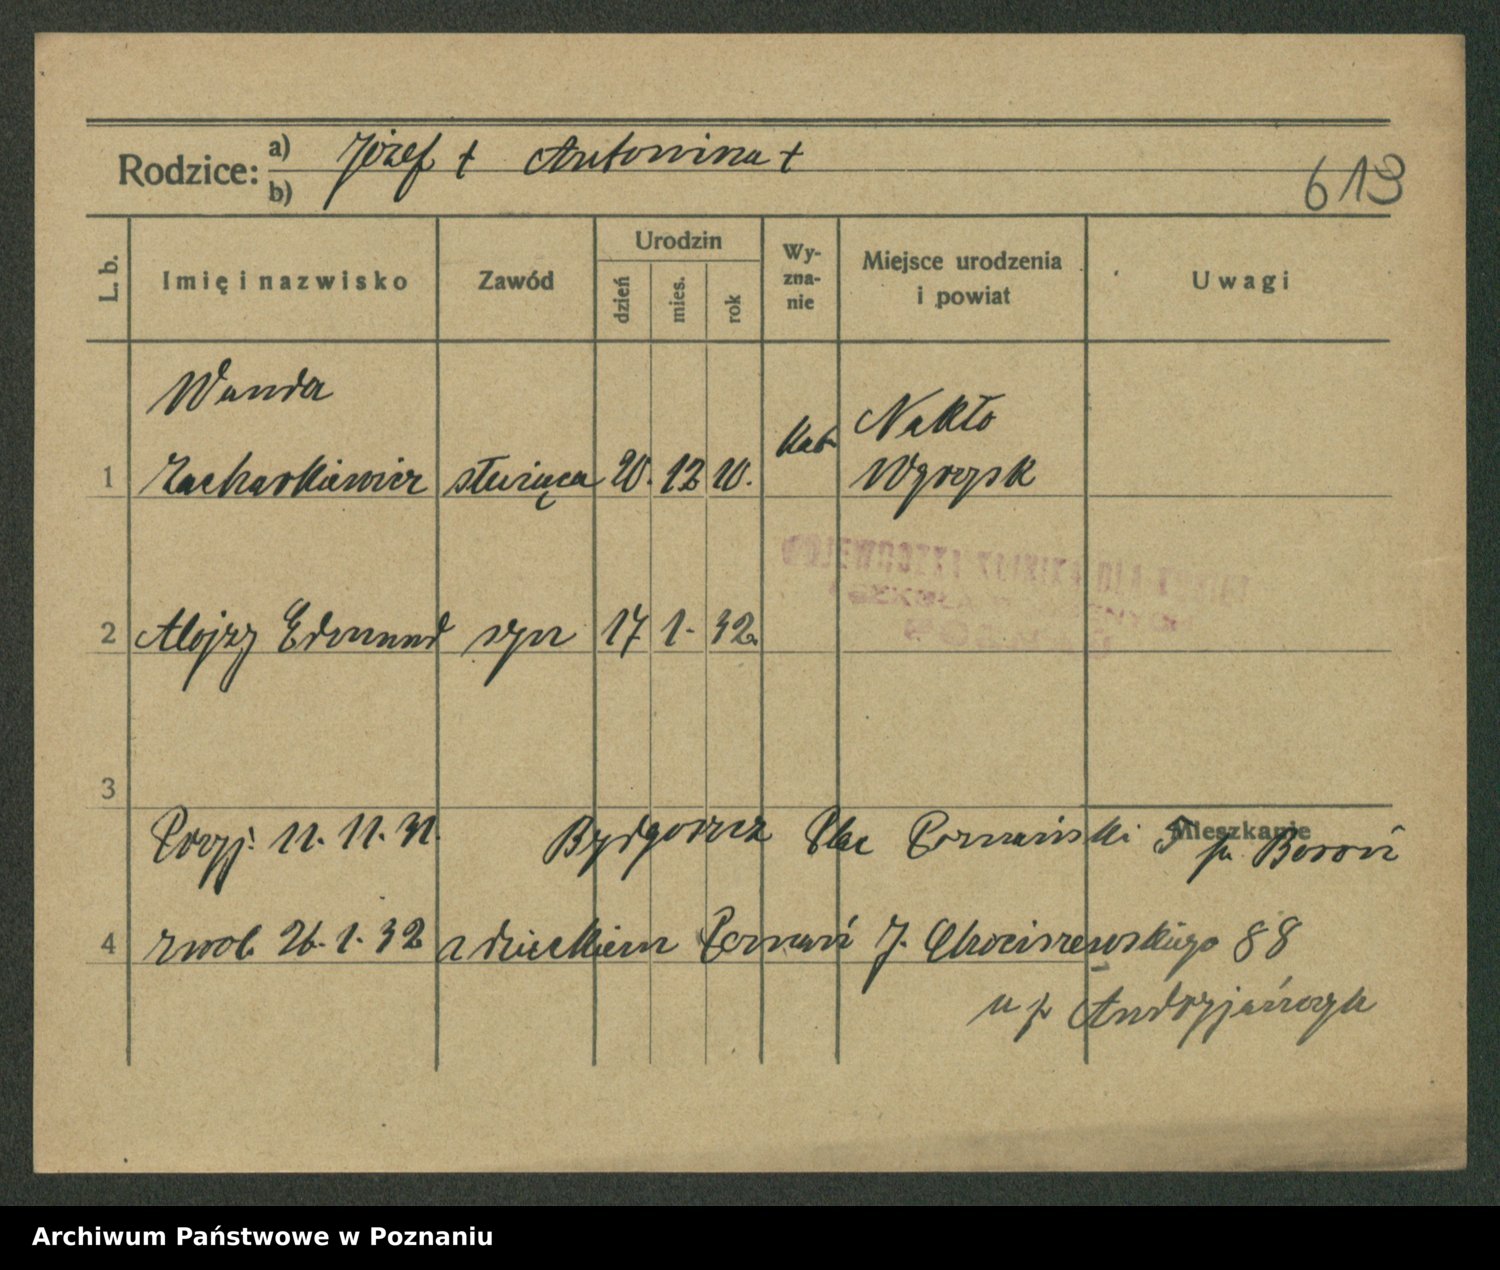 Rodzice: a) Józef + Antonina +
b)
613
L. b. Imię i nazwisko Zawód Urodzin dzień mies. rok Wy-zna-nie Miejsce urodzenia i powiat Uwagi
Wanda kat Nakło
1 Zacharkiewicz służąca 20. 12 10. Wyrzysk
WOJEWÓDZKA KLINIKA DLA KOBIET
2 Alojzy Edmund syn 17. 1. 32.
3
Mieszkanie
Przyj. 11. 11. 31. Bydgoszcz Plac Poznański 5 p. Boroń
4 zwol. 26. 1. 32 z dzieckiem Poznań J. Chociszewskiego 88
u p.
Archiwum Państwowe w Poznaniu